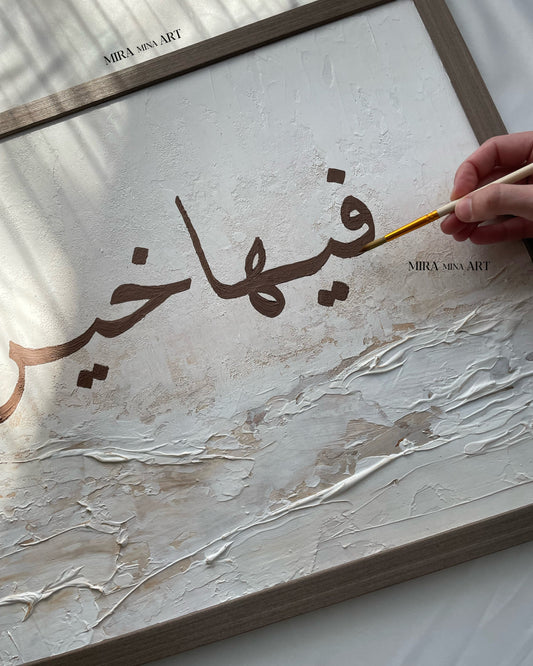 MIRA MINA ART
فيها خير
MIRA MINA ART